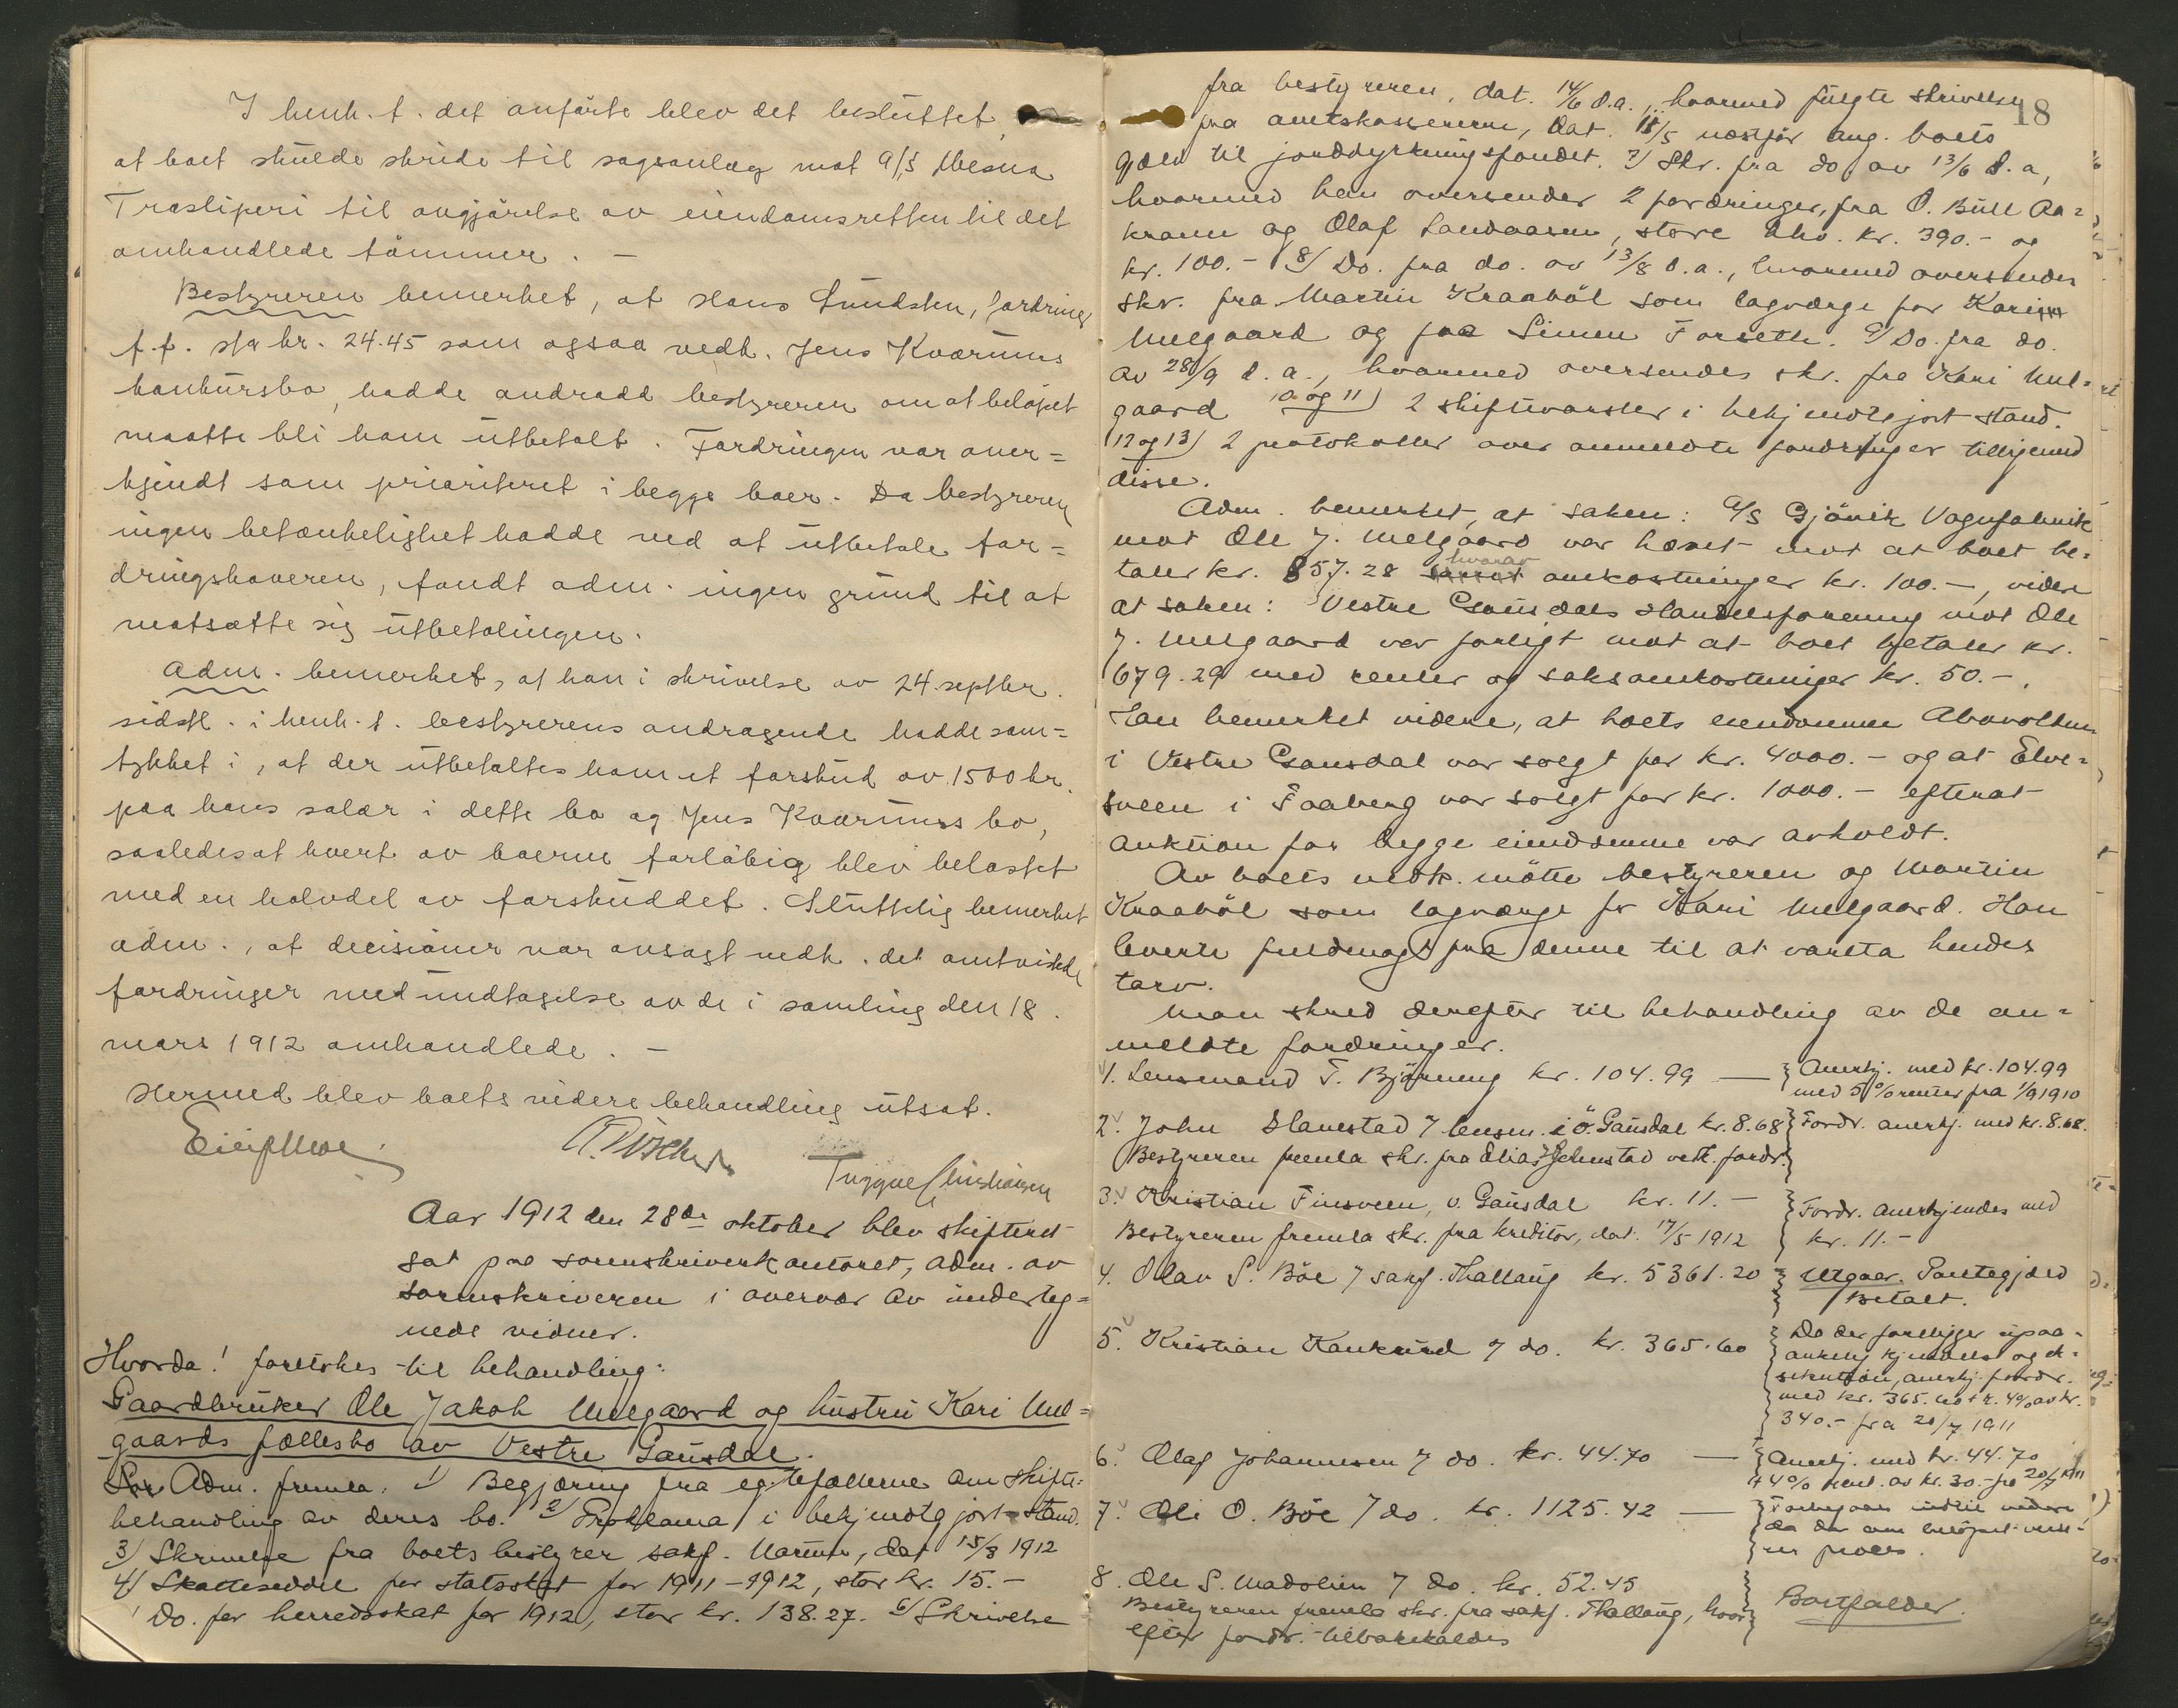 I henh. t. det anførte blev det besluttet,
at boet skulde skride til sagsanlæg mot A/S Mesna
Træsliperi til avgjørelse av eiendomsretten til det
omhandlede tømmer. —
Bestyreren bemerket, at Hans Sundsten, fordring
f.f. sfa kr. 24.45 som ogsaa vedk. Jens Kværums
konkursbo, hadde andradd bestyreren om at beløpet
maatte bli ham utbetalt. Fordringen var aner=
kjendt som prioriteret i begge boer. Da bestyreren
ingen betænkelighet hadde ved at utbetale for=
dringshaveren, fandt adm. ingen grund til at
motsætte sig utbetalingen.
Adm. bemerket, at han i skrivelse av 24. septbr.
sidstl. i henh. t. bestyrerens andragende hadde sam=
tykket i, at der utbetaltes ham et forskud av 1500 kr.
paa hans salær i dette bo og Jens Kværums bo,
saaledes at hvert av boerne forløbig blev belastet
med en halvdel av forskuddet. Sluttelig bemerket
adm., at decisioner var avsagt vedk. det omtvistede
fordringer med undtagelse av de i samling den 18.
mars 1912 omhandlede. —
Hermed blev boets videre behandling utsat.
Aar 1912 den 28de oktober blev skifteret
sat paa sorenskriverkontoret, adm. av
sorenskriveren i overvær av underteg=
nede vidner.
Hvorda! foretokes til behandling:
Gaardbruker Ole Jakob Melgaard og hustru Kari Mel=
gaards fællesbo av Vestre Gausdal.
Adm. fremla: 1/ Begjæring fra egtefællerne om skifte=
behandling av deres bo. 2/ Proklama i bekjendtgjort stand.
3/ Skrivelse fra boets bestyrer sakf. Narum, dat 15/8 1912
4/ Skatteseddel for statsskat for 1911–1912, stor kr. 15.–
Do. for herredsskat for 1912, stor kr. 138.27. 6/ Skrivelse
18
fra bestyreren, dat. 14/6 d.a., hvormed fulgte skrivelse
fra amtskassereren, dat. 11/5 næstfør ang. boets
gjæld til jorddyrkningsfondet. 7/ Skr. fra do av 13/6 d.a,
hvormed han oversender 2 fordringer, fra O. Bull Aa=
krann og Olaf Sandaasen, store hhv. kr. 390.– og
kr. 100.– 8/ Do. fra do. av 13/8 d.a., hvormed oversendes
skr. fra Martin Kraabøl som lagværge for Kari
Melgaard og fra Simen Forseth. 9/ Do. fra do.
av 28/9 d.a., hvormed oversendes skr. fra Kari Mel=
gaard 10 og 11) 2 skiftevarsler i bekjendtgjort stand.
12 og 13) 2 protokoller over anmeldte fordringer tillikemed
disse.
Adm. bemerket, at saken: A/S Gjøvik Vognfabrik
mot Ole J. Melgaard var hævet mot at boet be=
taler kr. 857.28 hvorav omkostninger kr. 100.–, videre
at saken: Vestre Gausdals Handelsforening mot Ole
J. Melgaard var forligt mot at boet betaler kr.
679.29 med renter og saksomkostninger kr. 50.–.
Han bemerket videre, at boets eiendomme
i Vestre Gausdal var solgt for kr. 4000.– og at Elve=
sveen i Faaberg var solgt for kr. 1000.– efterat
auktion for begge eiendomme var avholdt.
Av boets vedk. møtte bestyreren og Martin
Kraabøl som lagværge for Kari Melgaard. Han
leverte fuldmagt fra denne til at vareta hendes
tarv.
Man skred derefter til behandling av de an=
meldte fordringer.
1. Lensmand T. Bjørnung kr. 104.99 — Anerkj. med kr. 104.99
med 5% renter fra 1/9 1910
2. John Slanestad 7 lensm. i Ö. Gausdal kr. 8.68 Fordr. anerkj. med kr. 8.68.
Bestyreren fremla skr. fra Elias vedk. fordr.
3. Kristian Finsveen, v. Gausdal kr. 11.– Fordr. anerkjendes med
Bestyreren fremla skr. fra kreditor, dat. 17/5 1912 kr. 11.–
4. Olav S. Bøe 7 sakf. Thallaug kr. 5361.20 Utgaar. Pantegjæld
Betalt.
5. Kristian Kankrud 7 do. kr. 365.60 Da der foreligger upaa=
ankelig kjendelse og ek=
sekution, anerkj. fordr.
med kr. 365.60 + r. 4% av kr.
340.– fra 20/7 1911
6. Olaf Johannesen 7 do. kr. 44.70 — Anerkj. med kr. 44.70
+ 4% rent. av kr. 30.– fra 20/7 1911
7. Oli O. Bøe 7 do. kr. 1125.42 — Forbigaaes indtil videre
da der om beløpet vers=
er proces.
8. Ole S. Madslien 7 do. kr. 52.45
Bestyreren fremla skr. fra sakf. Thallaug, hvor= Bortfalder.
efter fordr. tilbakekaldes